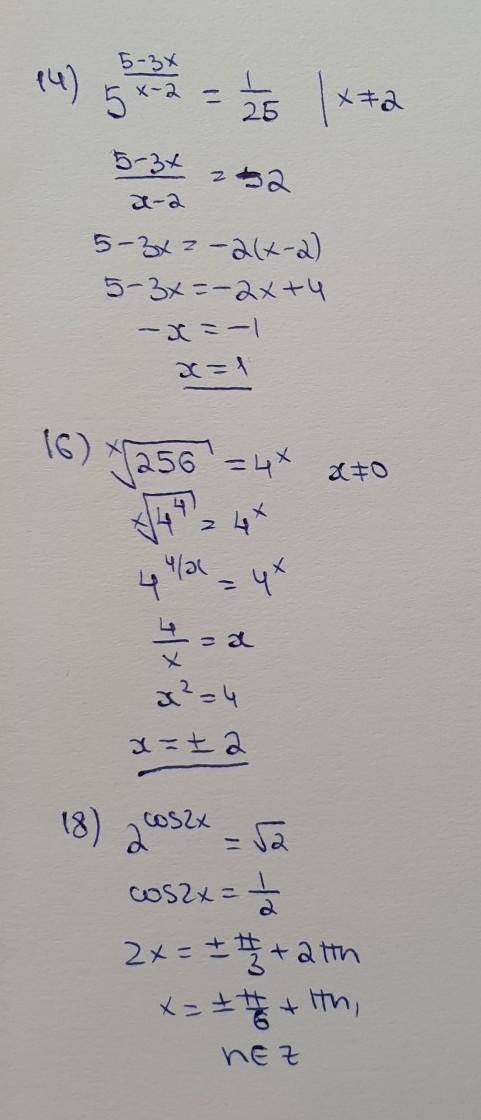 14) 5^((5-3x)/(x-2)) = 1/25 | x≠2
(5-3x)/(x-2) = -2
5-3x = -2(x-2)
5-3x = -2x+4
-x = -1
x = 1
16) ˣ√256 = 4^x x≠0
ˣ√4^4 = 4^x
4^(4/x) = 4^x
4/x = x
x² = 4
x = ± 2
18) 2^(cos2x) = √2
cos2x = 1/2
2x = ± π/3 + 2πn
x = ± π/6 + πn,
n∈Z